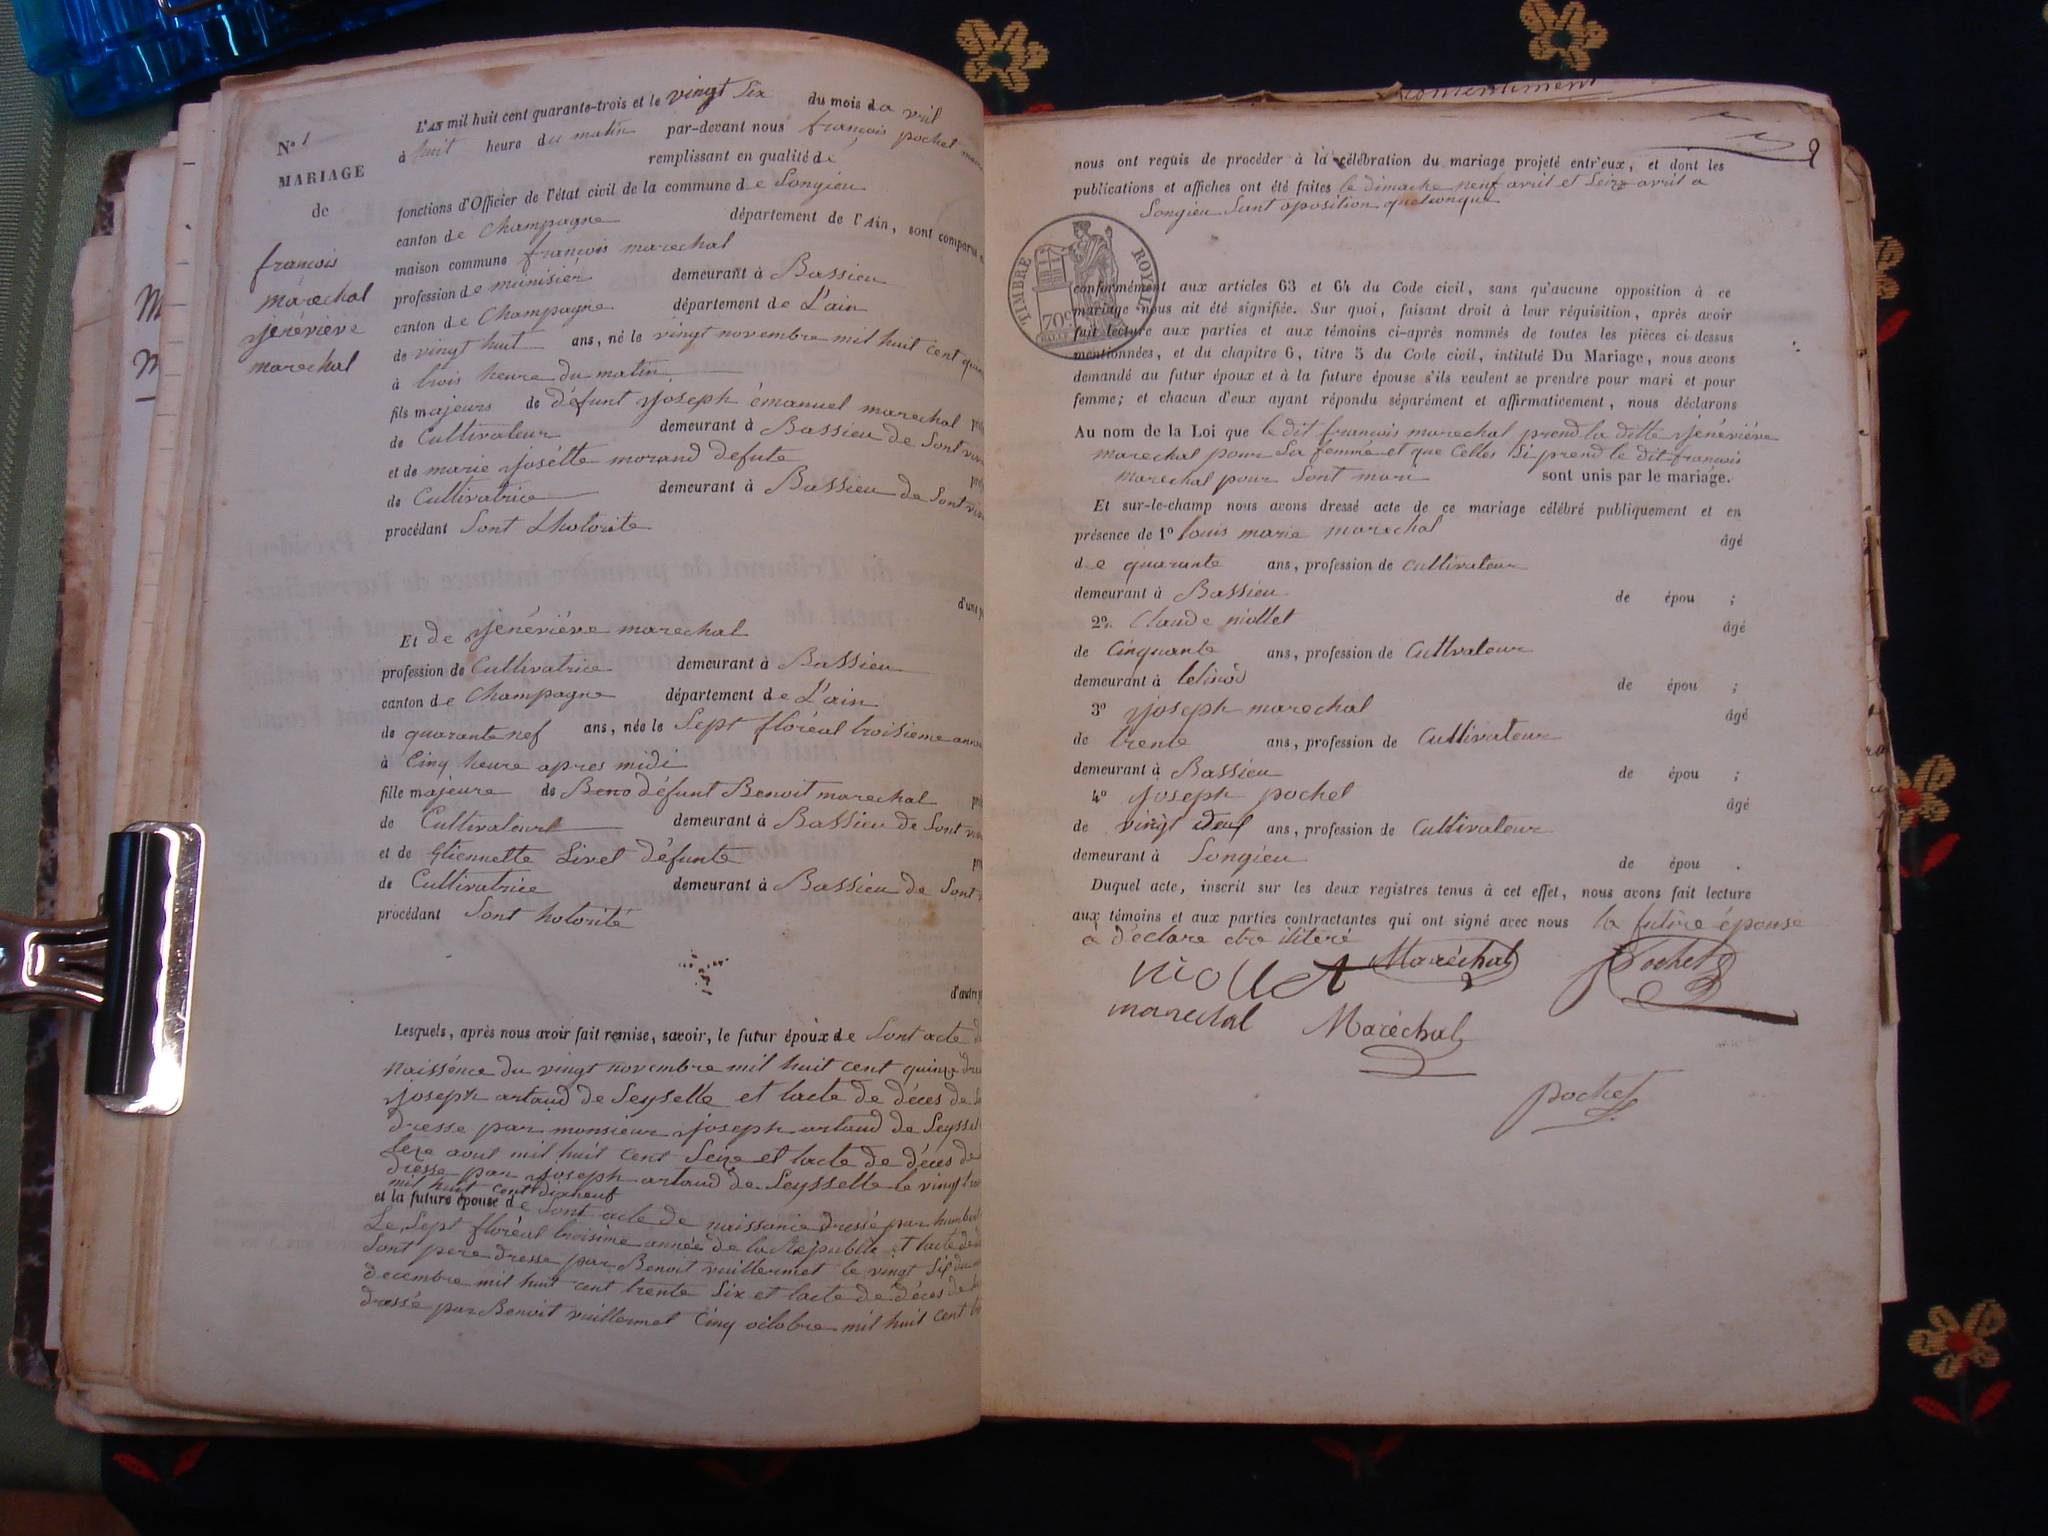 N° 1
MARIAGE
de
françois
maréchal
jéneviève
marechal
L'AN mil huit cent quarante-trois et le vingt Six du mois d'avril
à huit heure du matin par-devant nous françois pochet
remplissant en qualité de
fonctions d'Officier de l'état civil de la commune de Songieu
canton de Champagne département de l'Ain, sont comparus
maison commune françois marechal
profession de munisier demeurant à Bassieu
canton de Champagne département de L'ain
de vingt huit ans, né le vingt novembre mil huit cent
à trois heure du matin
fils majeurs de défunt joseph émanuel marechal
de Cultivateur demeurant à Bassieu de Sont
et de marie joséltte morand defute
de Cultivatrice demeurant à Bassieu de Sont
procédant Sont Lhotorite
Et de jénéviéve marechal
profession de Cultivatrice demeurant à Bassieu
canton de Champagne département de L'ain
de quarante nef ans, née le Sept floréal troisieme
à Cinq heure apres midi
fille majeure de Beno défunt Benoit marechal
de Cultivateur demeurant à Bassieu de Sont
et de Etiennette Livet défunte
de Cultivatrice demeurant à Bassieu de Sont
procédant Sont hotorité
Lesquels, après nous avoir fait remise, savoir, le futur époux de Sont acte
naissénce du vingt novembre mil huit cent quinze
joseph artaud de Seyselle et lacte de déces de
dresse par monsieur joseph artaud de
aout mil huit cent Seize et lacte de déces de
dresse par joseph artaud de Seysselle le vingt
mil huit cent dixneuf
et la future épouse de Sont acte de naissance dressé par
Le Sept floréal troisième année de la République et lacte de
Sont pere dresse par Benoit vuillermet le vingt Six
decembre mil huit cent trente Six et lacte de déces de
dressé par Benoit vuillermet Cinq octobre mil huit cent
consentiment
2
nous ont requis de procéder à la célébration du mariage projeté entr'eux, et dont les
publications et affiches ont été faites le dimache neuf avril et Seize avril a
Songieu Sant oposition quelconque
TIMBRE ROYAL
70c
conformément aux articles 63 et 64 du Code civil, sans qu'aucune opposition à ce
mariage nous ait été signifiée. Sur quoi, faisant droit à leur réquisition, après avoir
fait lecture aux parties et aux témoins ci-après nommés de toutes les pièces ci-dessus
mentionnées, et du chapitre 6, titre 5 du Code civil, intitulé Du Mariage, nous avons
demandé au futur époux et à la future épouse s'ils veulent se prendre pour mari et pour
femme; et chacun d'eux ayant répondu séparément et affirmativement, nous déclarons
Au nom de la Loi que le dit françois marechal prend la ditte jénéviéve
marechal pour Sa femme et que Celles Si prend le dit françois
marechal pour Sont mari sont unis par le mariage.
Et sur-le-champ nous avons dressé acte de ce mariage célébré publiquement et en
présence de 1° louis marie marechal âgé
de quarante ans, profession de cultivateur
demeurant à Bassieu de épou ;
2° Claude niollet âgé
de Cinquante ans, profession de Cultivateur
demeurant à de épou ;
3° joseph marechal âgé
de trente ans, profession de Cultivateur
demeurant à Bassieu de épou ;
4° joseph pochet âgé
de vingt ans, profession de Cultivateur
demeurant à Songieu de épou .
Duquel acte, inscrit sur les deux registres tenus à cet effet, nous avons fait lecture
aux témoins et aux parties contractantes qui ont signé avec nous la future épouse
à déclare etre iliteré
niollet Maréchal Pochet
marechal Maréchal
pochet